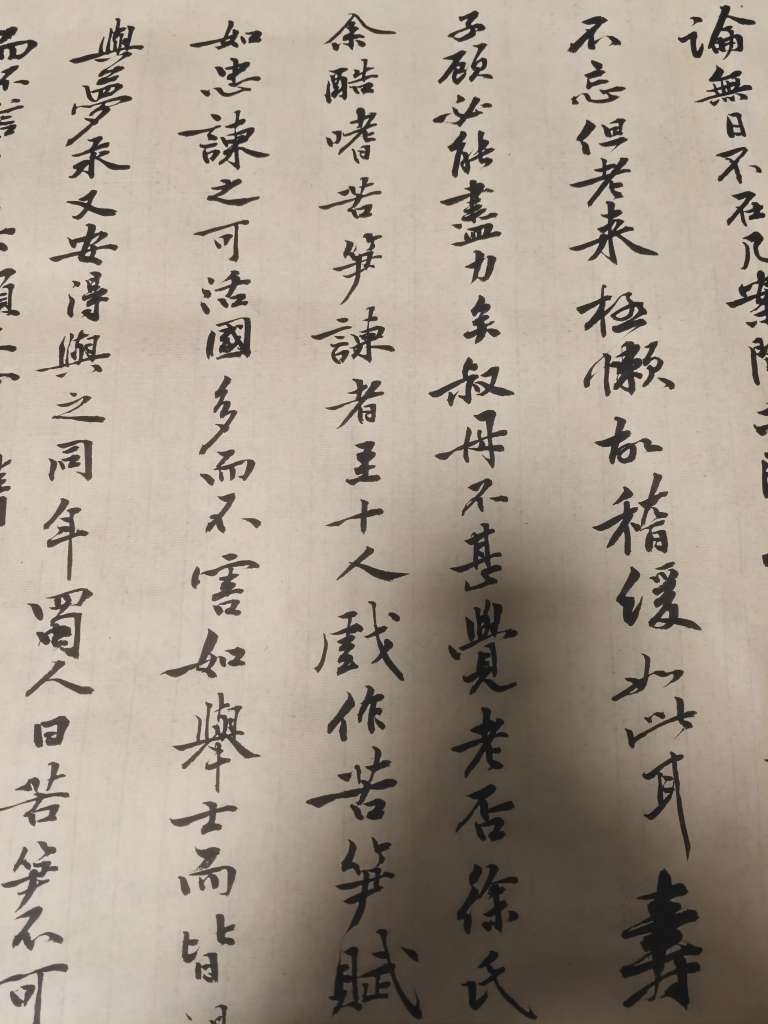 論無日不在几案間
不忘但老来極懶故稽缓如此耳壽
子顧必能盡力矣叔母不甚覺老否徐氏
余酷嗜苦笋諫者至十人戲作苦笋賦
如忠諫之可活國多而不害如舉士而皆
與夢永又安得與之同年蜀人曰若笋不可
而不信